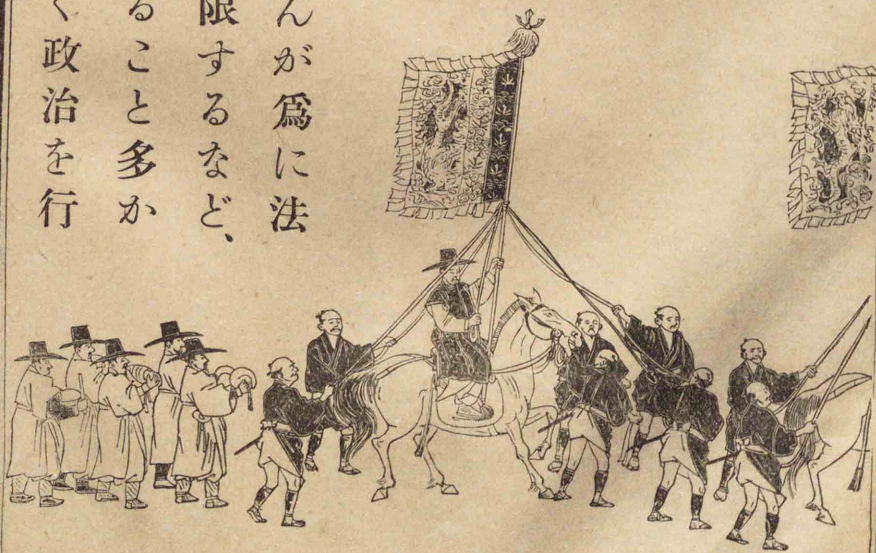 んが爲に法
限するなど、
ること多か
く政治を行